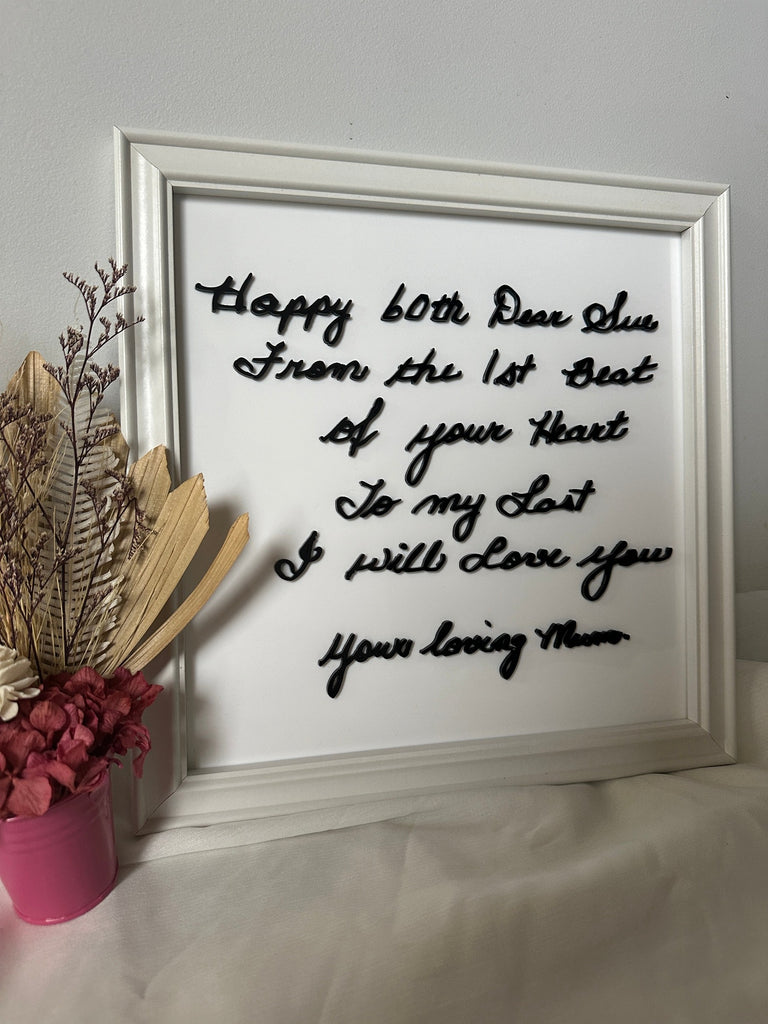 Happy 60th Dear Sue
From the 1st Beat
of your Heart
To my Last
I will Love you
your loving Mum.